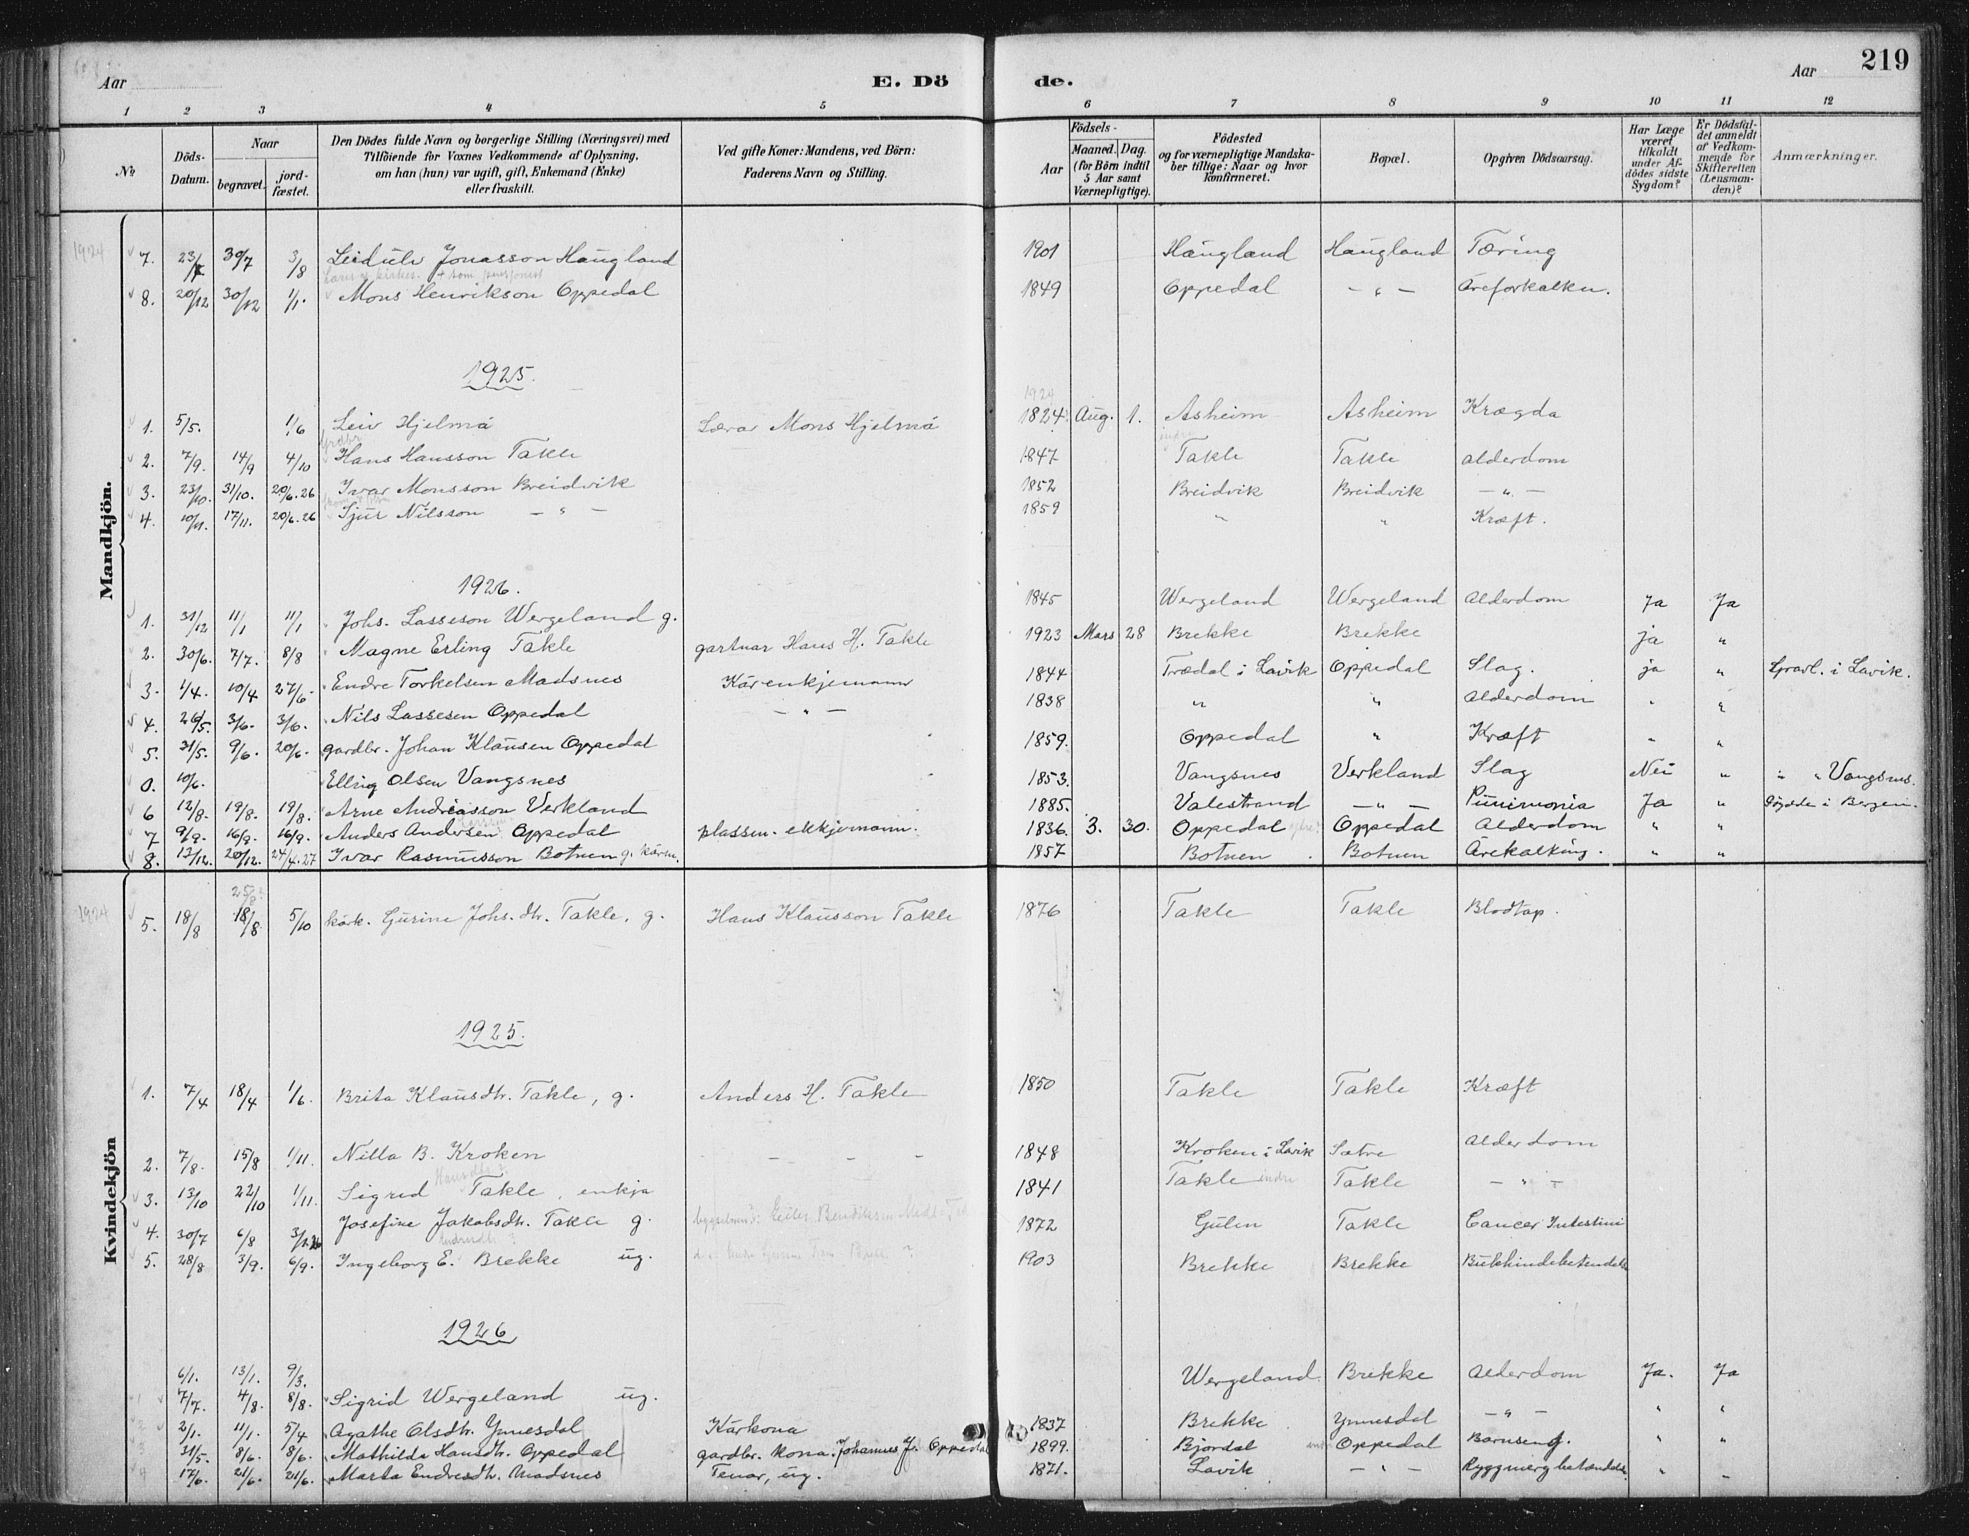 Aar E. Dö de. Aar 219
1 2 3 4 5 6 7 8 9 10 11 12
No
Döds-Datum.
Naar
begravet.
jord-fæstet.
Den Dödes fulde Navn og borgerlige Stilling (Næringsvei) med
Tilföiende for Voxnes Vedkommende af Oplysning,
om han (hun) var ugift, gift, Enkemand (Enke)
eller fraskilt.
Ved gifte Koner: Mandens, ved Börn:
Faderens Navn og Stilling.
Födsels-
Aar
Maaned. Dag.
(for Börn indtil
5 Aar samt
Værnepligtige).
Födested
og for værnepligtige Mandska-
ber tillige: Naar og hvor
konfirmeret.
Bopæl.
Opgiven Dödsaarsag.
Har Læge
været
tilkaldt
under Af-
dödes sidste
Sygdom?
Er Dödsfal-
det anmeldt
af Vedkom-
mende for
Skifteretten
(Lensman-
den)?
Anmærkninger.
Mandkjön.
1924 7. 23/7 30/7 3/8 Leidulv Jonasson Haugland 1901 Haugland Haugland Tæring
8. 20/12 30/12 1/1. Mons Henrikson Oppedal 1849 Oppedal — " — Åreforkalkn.
1925.
1924
1. 5/5. 1/6 Leiv Hjelmå Lærar Mons Hjelmå 1824 Aug. 1. Asheim Asheim Krægda
2. 7/9. 14/9 4/10 Hans Hansson Takle 1847 indre Takle Takle Alderdom
3. 23/10. 31/10. 20/6.26 Ivar Monsson Breidvik 1852 Breidvik Breidvik — " —
4. 10/11. 17/11. 20/6.26 Sjur Nilsson — " — 1859 " " Kræft.
1926.
1. 31/12 11/1 11/1 Johs. Lasseson Wergeland g. 1845 Wergeland Wergeland Alderdom Ja Ja
2. 30/6. 7/7. 8/8 Magne Erling Takle gartnar Hans H. Takle 1923 Mars 28 Brekke Brekke ja "
3. 1/4. 10/4 27/6. Endre Torkelsen Madsnes Kårenkjemann 1844 Trædal i Lavik Oppedal Slag. ja " Gravl. i Lavik.
4. 26/5. 3/6. 3/6. Nils Lassesen Oppedal — " — 1838 " " Alderdom " "
5. 31/5. 9/6. 20/6. gardbr. Johan Klausen Oppedal 1859. Oppedal " Kræft " "
0. 10/6. Elling Olsen Vangsnes 1853. Vangsnes Verkland Slag Nei " " " Vangsnes.
6 12/8. 19/8. 19/8. Arne Andreasson Verkland 1885. Valestrand — " — Punimonia Ja " Døydde i Bergen.
7 9/9. 16/9. 16/9. Anders Andersen Oppedal plassm. ekkjemann. 1836. 3. 30. Oppedal Oppedal Alderdom " "
8. 13/12. 20/12. 24/4.27 Ivar Rasmusson Botnen g. kårm. 1857 Botnen Botnen Årekalking. " "
Kvindekjön
25/8
1924 5. 18/8 18/8 5/10 kårk. Gurine Johs. dtr. Takle, g. Hans Klausson Takle 1876 Takle Takle Blodtap.
1925.
1. 7/4 18/4 1/6. Brita Klausdtr. Takle, g. Anders H. Takle 1850 Takle Takle Kræft
2. 7/8. 15/8 1/11. Nilla B. Kroken — — — 1848 Kroken i Lavik Sætre Alderdom
3. 13/10 22/10 1/11. Sigrid Takle, enkja 1841 Takle indre Takle — " —
4. 30/7 6/8 Josefine Jakobsdtr. Takle g. 1872 Gulen Takle Cancer Intestini
5. 28/8 3/9. 6/9. Ingeborg E. Brekke ug. 1903 Brekke Brekke Bukhindebetendelse
1926
6/1. 13/1. 9/3. Wergeland Brekke Alderdom Ja. Ja
7/7. 4/8. 8/8. Sigrid Wergeland ug.
2/1. 11/1. 5/4 Agathe Olsdtr. Ynnesdal Kårkona 1837 Brekke Ynnesdal — " — " "
31/5. 8/6. 8/6. Mathilde Hansdtr. Oppedal gardbr. kona. Johannes J. Oppedal 1899. Bjordal Oppedal Barnseng. " "
17/6. 21/6. 21/6. Marta Endresdtr. Madsnes Tenar, ug. 1871. Lavik — " — Ryggmergbetændelse " "